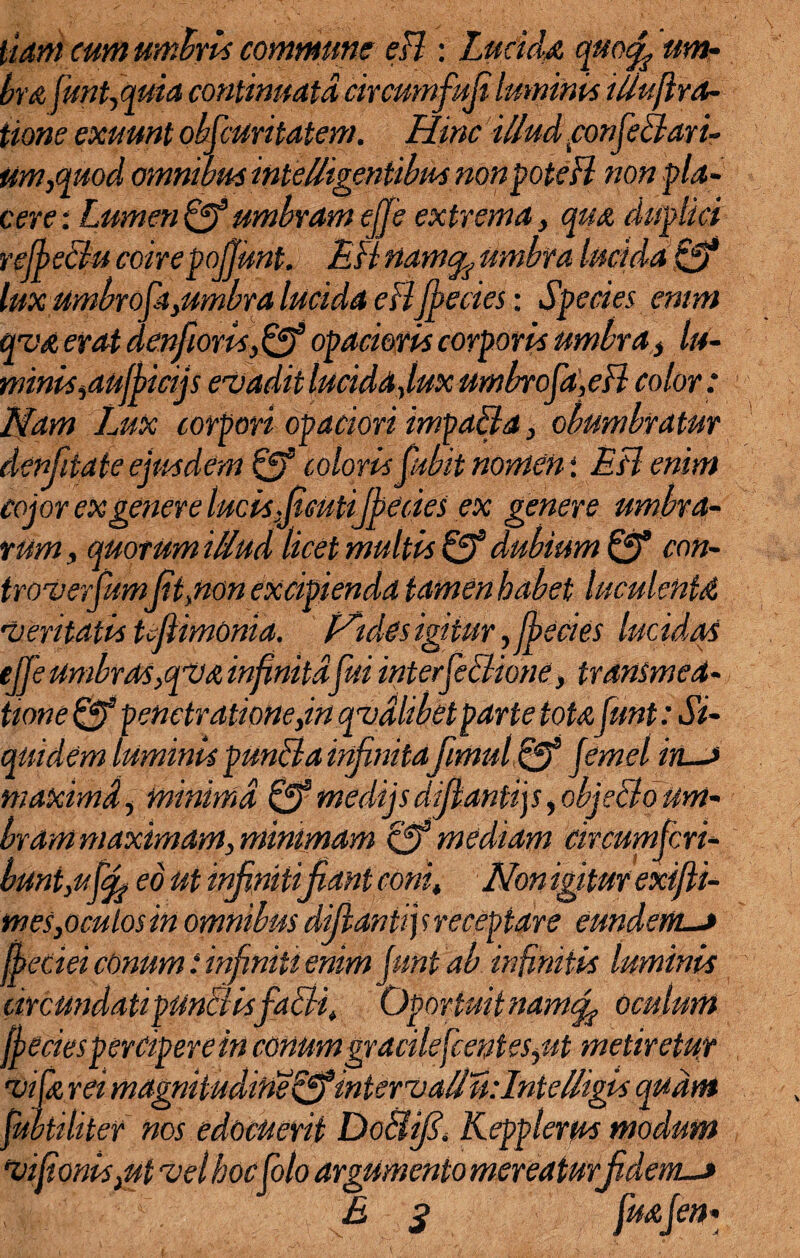 tiam cum umbris commune est : Lucidæ quoq́; um-
bræ sunt,quia continuatâ circumfusi luminis illustra-
tione exuunt obscuritatem. Hinc illud consectari-
um,quod omnibus intelligentibus non potest non pla-
cere: Lumen & umbram esse extrema, quæ duplici
respectu coire possunt. Est namq́; umbra lucida &
lux umbrosa,umbra lucida est species: Species enim
qvæ erat densioris,& opacioris corporis umbra, lu-
minis,auspicijs evadit lucida,lux umbrosa,est color:
Nam Lux corpori opaciori impacta, obumbratur
densitate ejusdem & coloris subit nomen: Est enim
cojor ex genere lucis,sicuti species ex genere umbra-
rum, quorum illud licet multis & dubium & con-
troversum sit,non excipienda tamen habet luculentæ
veritatis testimonia. Vides igitur, species lucidas
esse umbras,qvæ infinitâ sui intersectione, transmea-
tione & penetratione,in qvâlibet parte totæ sunt: Si-
quidem luminis puncta infinita simul & semel in
maximâ, minimâ & medijs distantijs, objecto um-
bram maximam, minimam & mediam circumscri-
bunt,usq́; eò ut infiniti fiant coni. Non igitur existi-
mes,oculos in omnibus distantijs receptare eundem
speciei conum: infiniti enim sunt ab infinitis luminis
circundati punctis facti. Oportuit namq́; oculum
species percipere in conum gracilescentes,ut metiretur
visæ rei magnitudinē & intervallū: Intelligis quàm
subtiliter nos edocuerit Doctiss. Kepplerus modum
visionis,ut vel hoc solo argumento mereatur fidem
E 3 suæ sen-